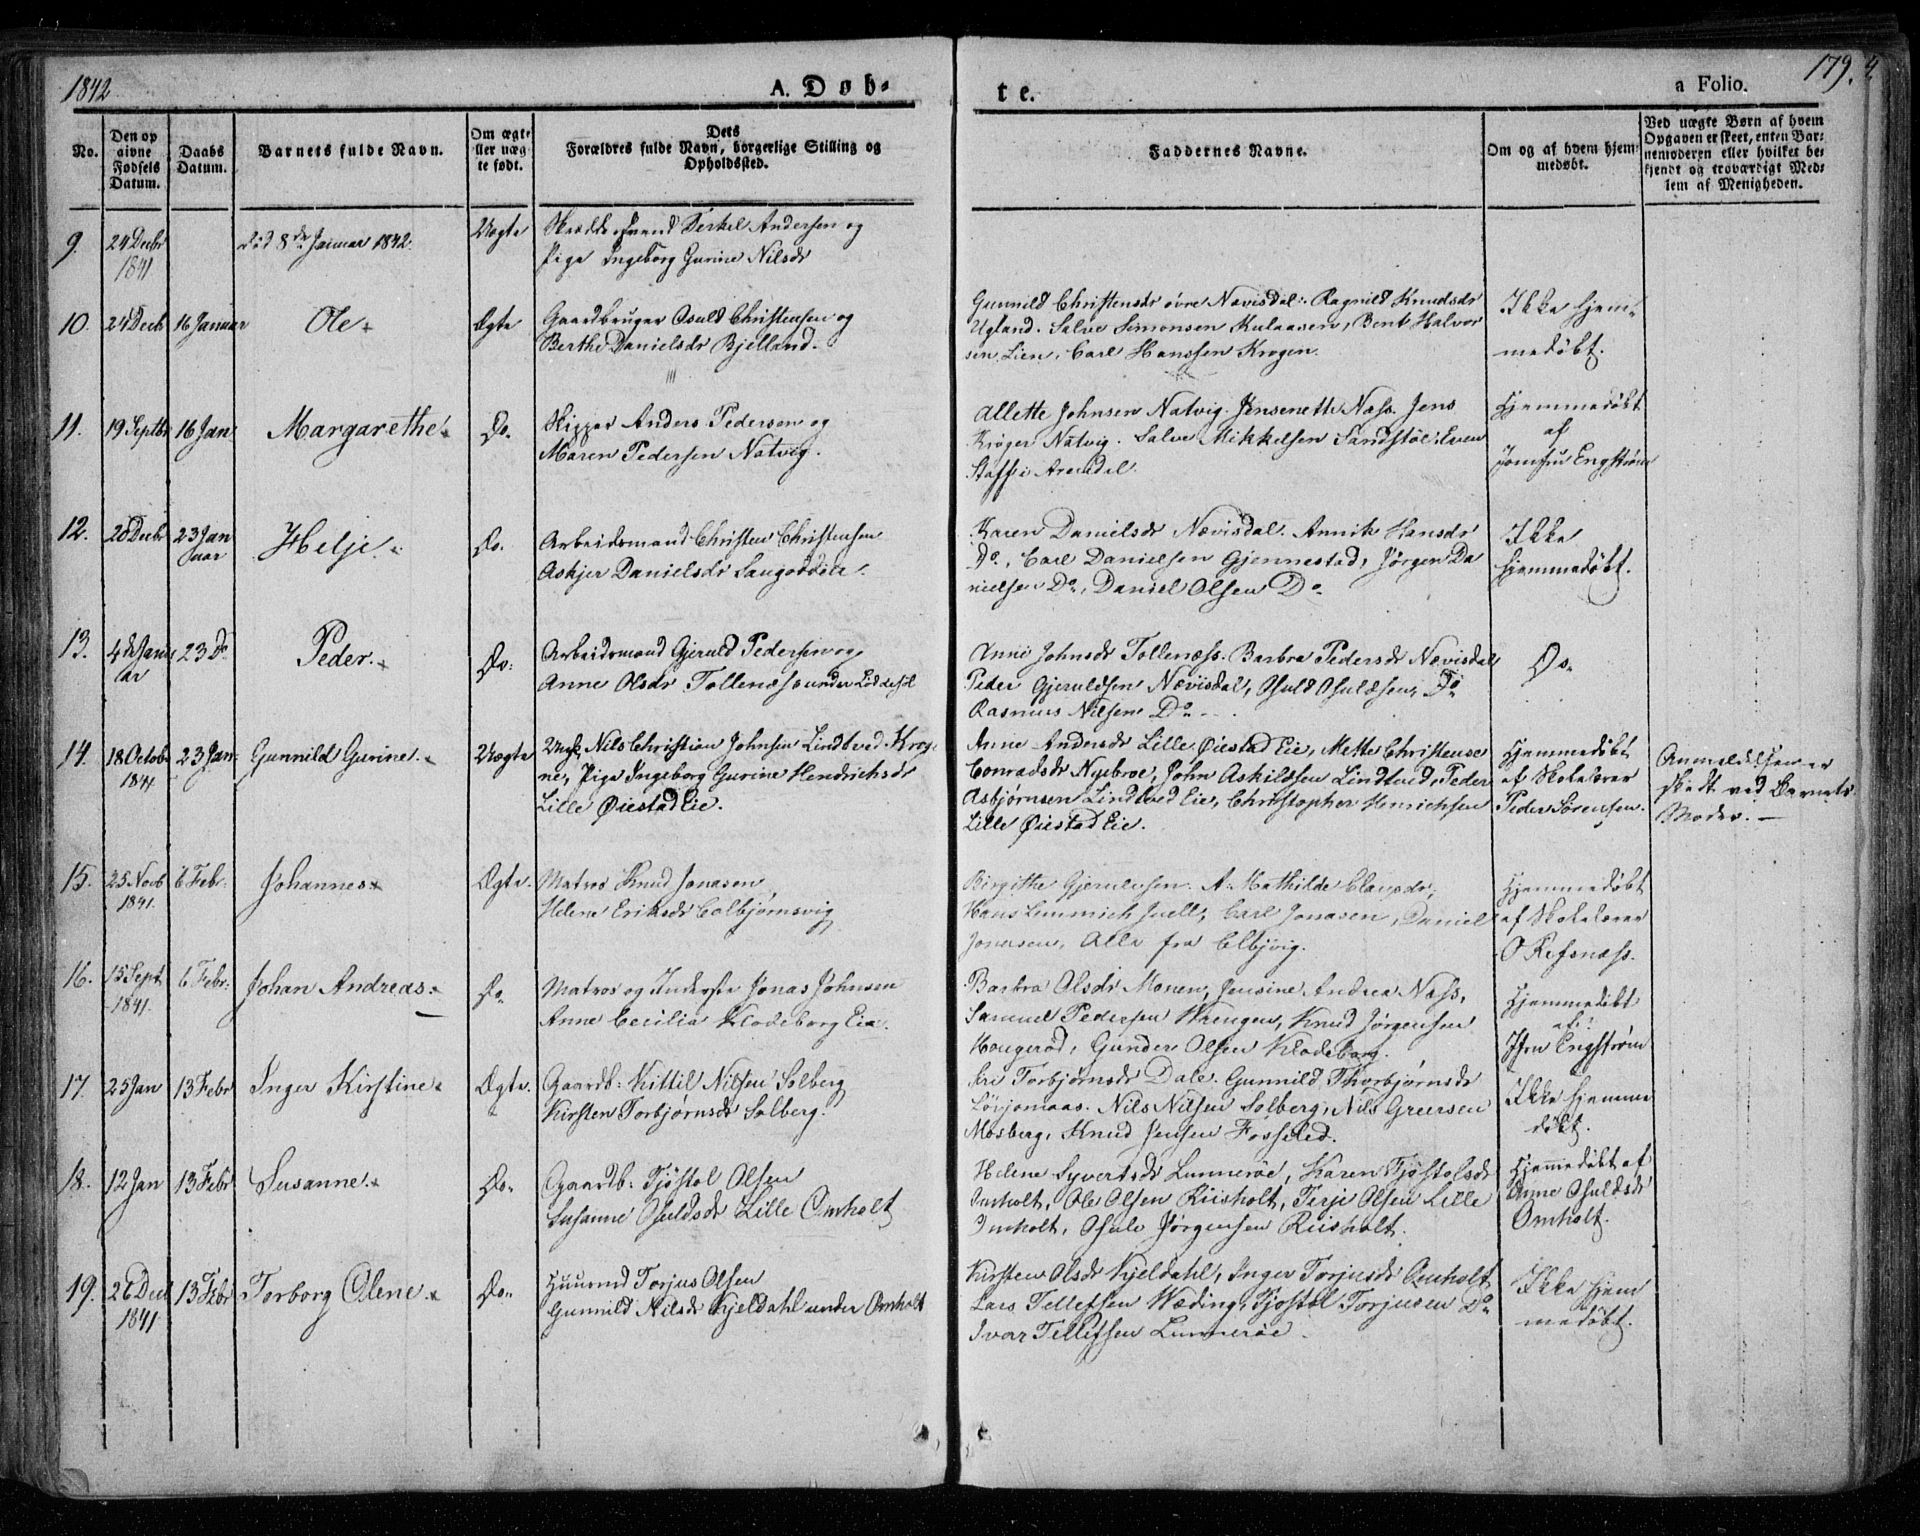 1842
A. Døb-
te.
a Folio.
179.
No.
Den op
givne
Fødsels
Datum.
Daabs
Datum.
Barnets fulde Navn.
Om ægte
eller uæg
te født.
Dets
Forældres fulde Navn, borgerlige Stilling og
Opholdssted.
Faddernes Navne.
Om og af hvem hjem-
medøbt.
Ved uægte Børn af hvem
Opgaven er skeet, enten Bar-
nemoderen eller hvilket be-
kjendt og troværdigt Med-
lem af Menigheden.
9. 24 Decbr
1841
død 8de Januar 1842.
Uægte
Terkel Andersen og
Pige Ingeborg Gurine Nilsdr
10. 24 Decb 16 Januar Ole. Ægte
Gaardbruger Osuld Christensen og
Berthe Danielsdr Bjelland.
Gunnild Christensdr øvre Nævisdal. Ragnild Knudsdr
Ugland. Salve Simonsen Kulaasen, Bent Halvor
sen Lien, Carl Hanssen Krogen.
Ikke hjem-
medøbt.
11. 19 Septbr 16 Jan Margarethe. Do.
Skipper Anders Pedersen og
Maren Pedersen Natvig.
Allette Johnsen Natvig. Jensenette Næss. Jens
Krøger Natvig. Salve Mikkelsen Sandstøe. Even
Staffe i Arendal.
Hjemmedøbt
af
Jomfru Engstrøm
12. 20 Decbr 23 Jan
uar
Helje. Do.
Arbeidsmand Christen Christensen
Askjer Danielsdr
Karen Danielsdr Nævisdal. Annik Hansdr
Do, Carl Danielsen Gjennestad, Jørgen Da
nielsen Do, Daniel Olsen Do
Ikke
hjemmedøbt.
13. 4de Janu
ar
23 Do Peder. Do.
Arbeidsmand Gjeruld Pedersen og
Anne Olsdr Tollenæs under Løddesøl
Anne Johnsdr Tollenæss. Barbra Pedersdr Nævisdal
Peder Gjeruldsen Nævisdal, Osuld Osuldsen Do
Rasmus Nilsen Do
Do
14. 18 Octob
1841
23 Jan Gunnild Gurine. Uægte
Ungk. Nils Christian Johnsen Lindtved Krog
ne, Pige Ingeborg Gurine Hendrichsdr
Lille Øiestad Eie.
Anne Andersdr Lille Øiestad Eie, Mette Christense
Conradsdr Nyebroe, John Askildsen Lindtved, Peder
Asbjørnsen Lindtved Eie, Christopher Henrichsen
Lille Øiestad Eie.
Hjemmedøbt
af Skolelærer
Peder Sørensen.
Anmeldelsen er
skedt ved Barnets
Moder.
15. 25 Novb
1841.
6 Febr. Johannes Ægte.
Matros Knud Jonasen,
Helene Eriksdr Colbjørnsvig
Birgithe Gjeruldsen. A. Mathilde Clausdr,
Hans Lemmich Juell, Carl Jonasen, Daniel
Jonasen, Alle fra Clbjvig.
Hjemmedøbt
af Skolelærer
O Refsnæss.
16. 15 Sept
1841.
6 Febr. Johan Andreas. Do
Matros og Inderste Jonas Johnsen
Anne Cecilia Klodeborg Eie.
Barbra Olsdr Monen, Jensine Andrea Næss,
Samuel Pedersen Wrengen, Knud Jørgensen
Hougerød, Gunder Olsen Klodeborg.
Hjemmedøbt
af
Jfru Engstrøm
17. 25 Jan 13 Febr Inger Kirstine. Ægte.
Gaardb: Kittil Nilsen Solberg
Kirsten Torbjørnsdr Solberg.
Siri Torbjørnsdr Dale. Gunnild Thorbjørnsdr
Nils Nilsen Solberg, Nils Greersen
Mosberg, Knud Jensen Fosselid.
Ikke hjemme
døbt.
18. 12 Jan 13 Febr Susanne. Do.
Gaardb: Tjøstol Olsen
Susanne Osuldsdr Lille Omholt
Helene Syvertsdr Lunnerøe, Karen Tjøstolsdr
Omholt, Ole Olsen Riisholt, Terje Olsen Lille
Omholt, Osule Jørgensen Riisholt.
Hjemmedøbt af
Anne Osuldsdr
Omholt.
19. 26 Decb
1841
13 Febr Torborg Olene. Do
Huusmd Torjus Olsen
Gunnild Nilsdr Kjeldahl under Omholt
Kirsten Olsdr Kjeldahl, Inger Torjusdr Omholt
Lars Tellefsen Wæding, Tjøstol Torjusen Do
Ivar Tellefsen Lunnerøe.
Ikke hjem
medøbt.